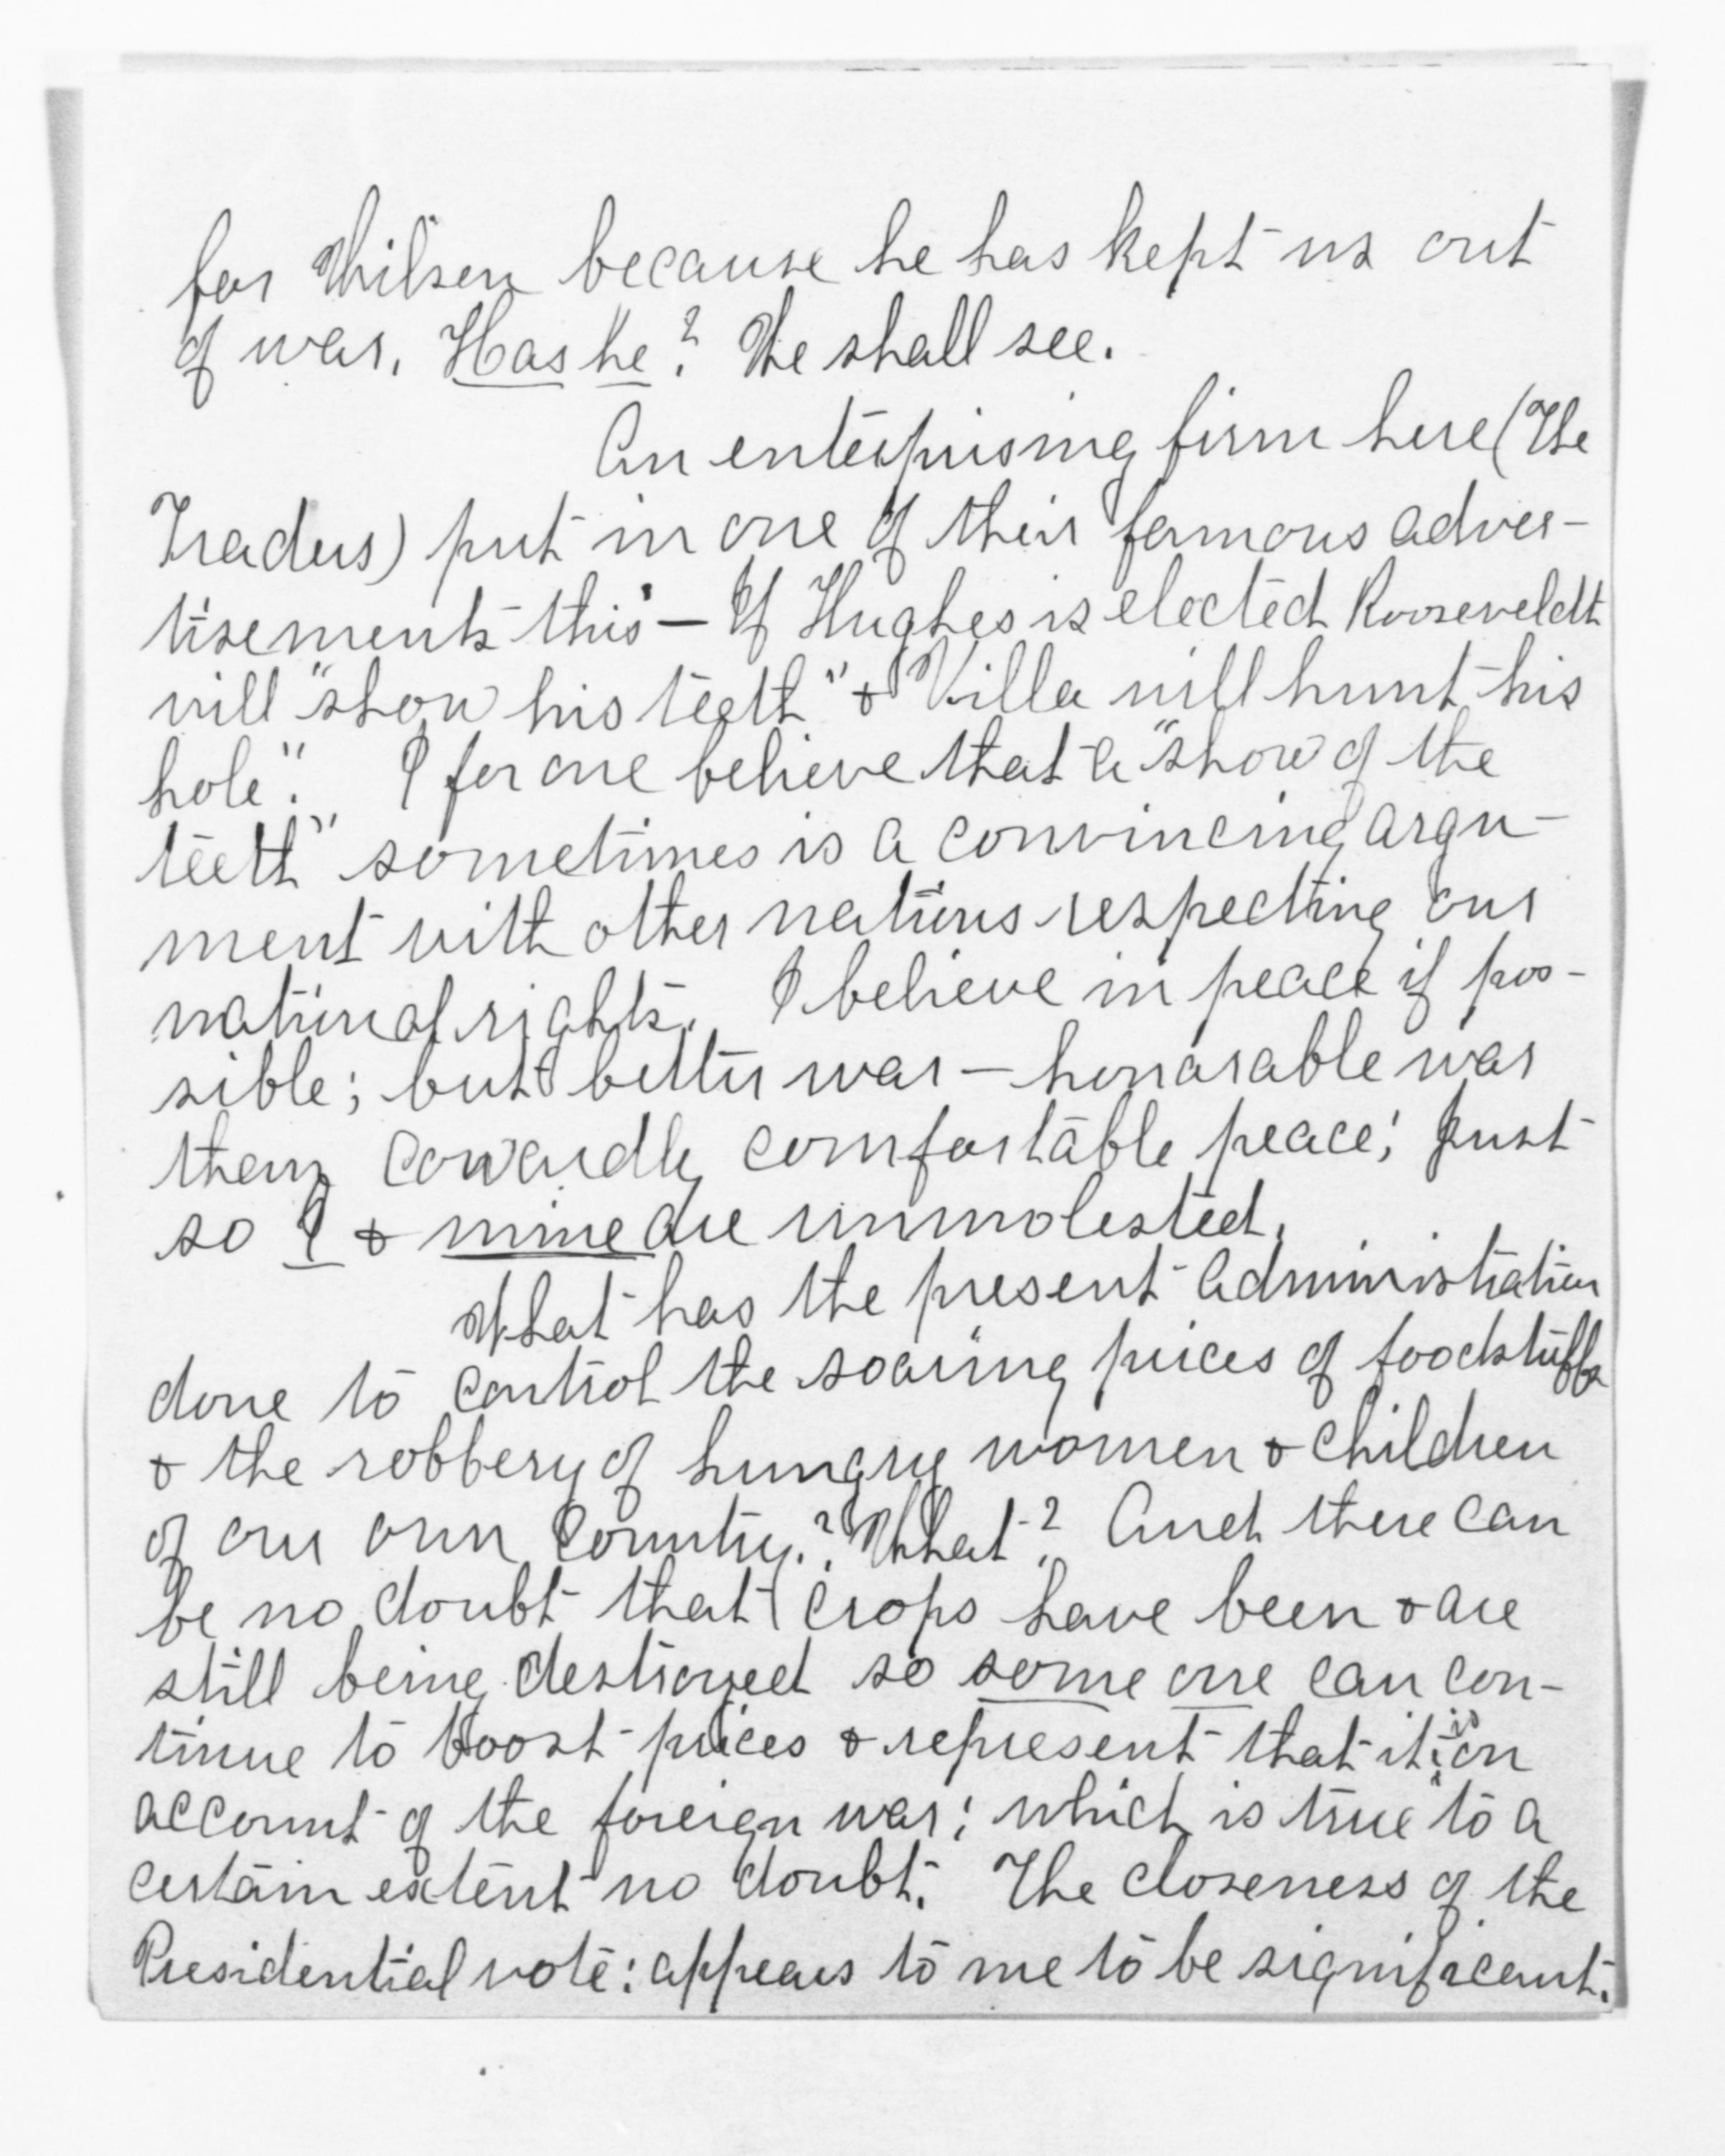 for Wilson because he has kept us out
of war. Has he? We shall see.
An enterprising firm here (The
Traders) put in one of their famous adver-
tisements this — If Hughes is elected Rooseveldt
will "show his teeth" & Villa will hunt his
hole". I for one believe that a "show of the
teeth" sometimes is a convincing argu-
ment with other nations respecting our
national rights. I believe in peace if pos-
sible; but better war — honorable war
than cowardly comfortable peace; just
so I & mine are unmolested.
What has the present administration
done to control the soaring prices of foodstuffs
& the robbery of hungry women & children
of our own country? What? And there can
be no doubt that crops have been & are
still being destroyed so some one can con-
tinue to boost prices & represent that it is on
account of the foreign war; which is true to a
certain extent no doubt. The closeness of the
Presidential vote: appears to me to be significant.